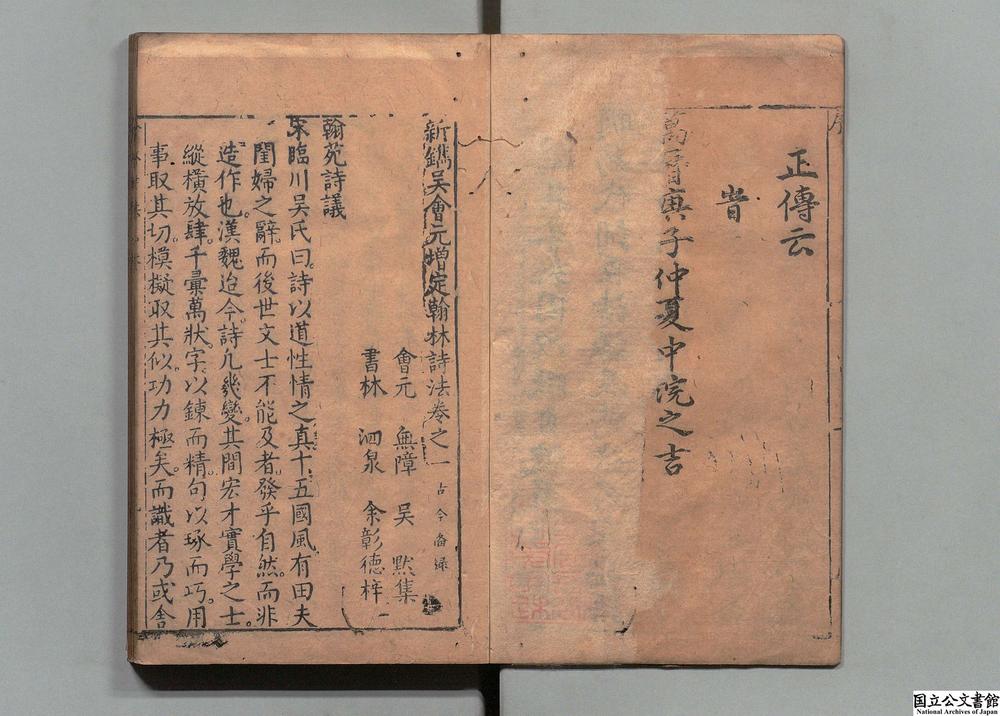 正傳云
旹
萬曆庚子仲夏中院之吉
新鐫吳會元增定翰林詩法卷之一
會元 無障 吳 默集
書林 泗泉 余彰德梓
翰苑詩議
宋臨川吳氏曰。詩以道性情之真。十五國風。有田夫
閨婦之辭。而後世文士不能及者。發乎自然。而非
造作也。漢魏迨今。詩凡幾變。其間宏才實學之士。
縱橫放肆。千彙萬狀。字以鍊而精。句以琢而巧。用
事取其切。模擬取其似。功力極矣。而識者乃或舍
国立公文書館
National Archives of Japan